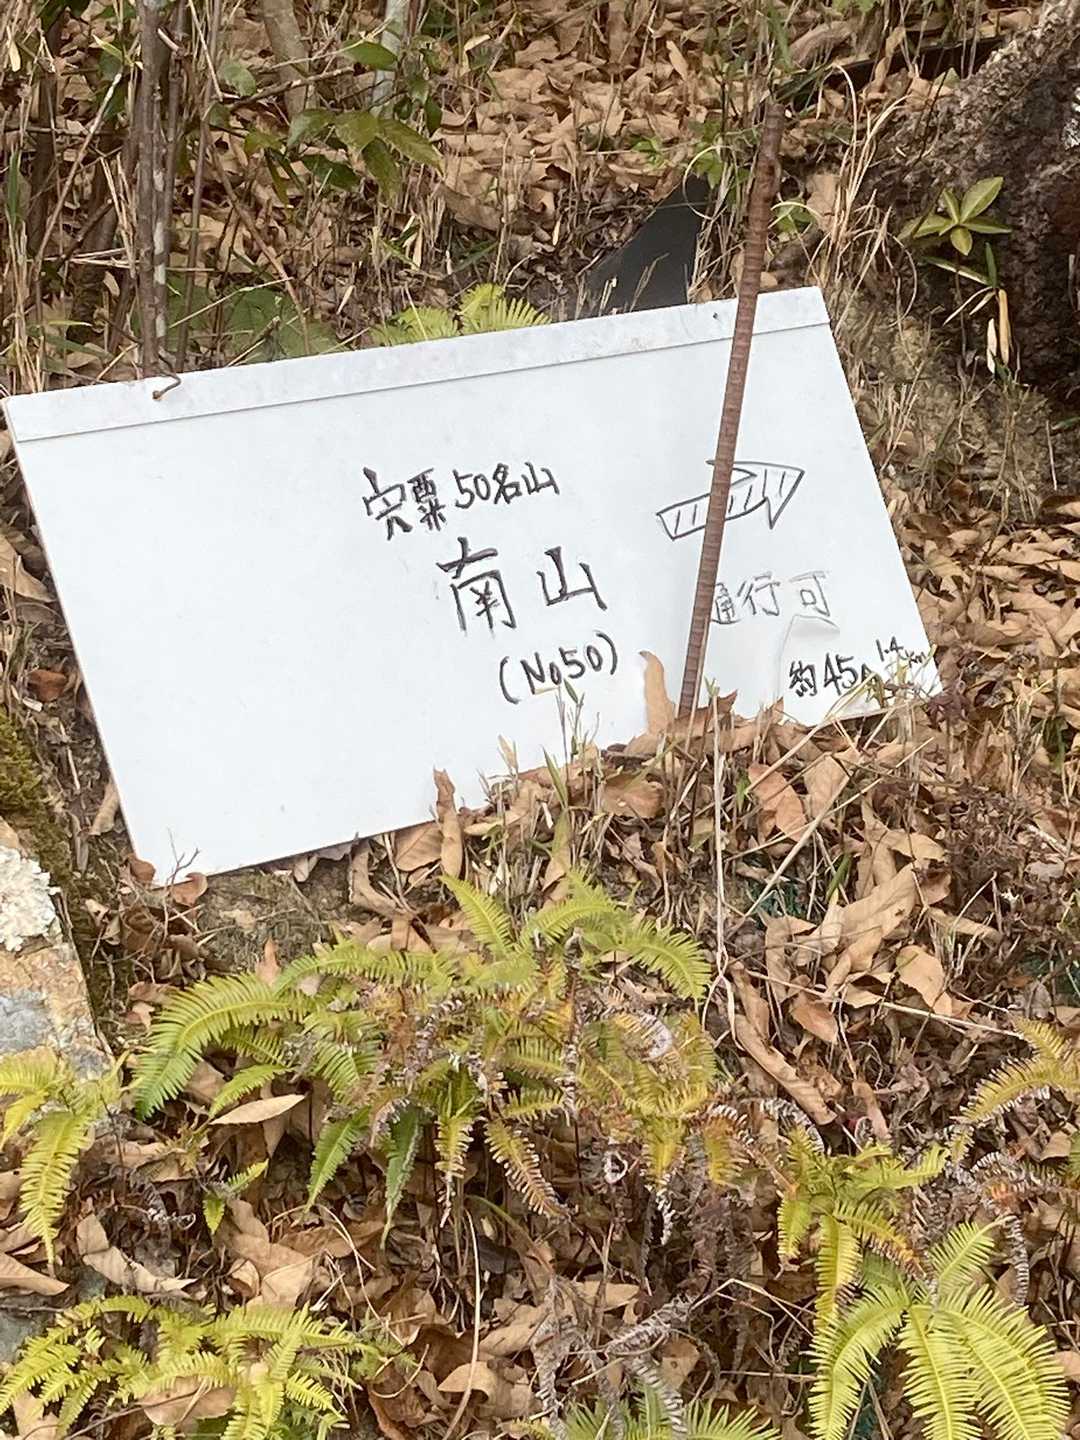 宍粟50名山
南山
(No50)
通行可
約45分 1.4km